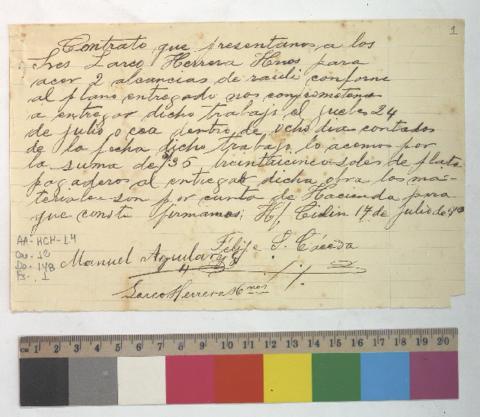 1
Contrato que presentanos a los
Sres Larco Herrera Hnos para
acer 2 alcancias de raili conforme
al plano entregado nos conprometemos
a entregar dicho trabajo el jueves 24
de julio o cea dentro de ocho dia contados
de la fecha dicho trabajo lo acemos por
la suma de $35 treintaicinco soles de plata
pagadero al entregar dicha obra los ma-
teriales son por cuenta de Hacienda para
que conste firmamos; H/ 17 de julio de
Felipe S.
Manuel Aguilar
Larco Herrera Hnos
AA-HCH-L4
Do. 148
Fs. 1
cm 1 2 3 4 5 6 7 8 9 10 11 12 13 14 15 16 17 18 19 20